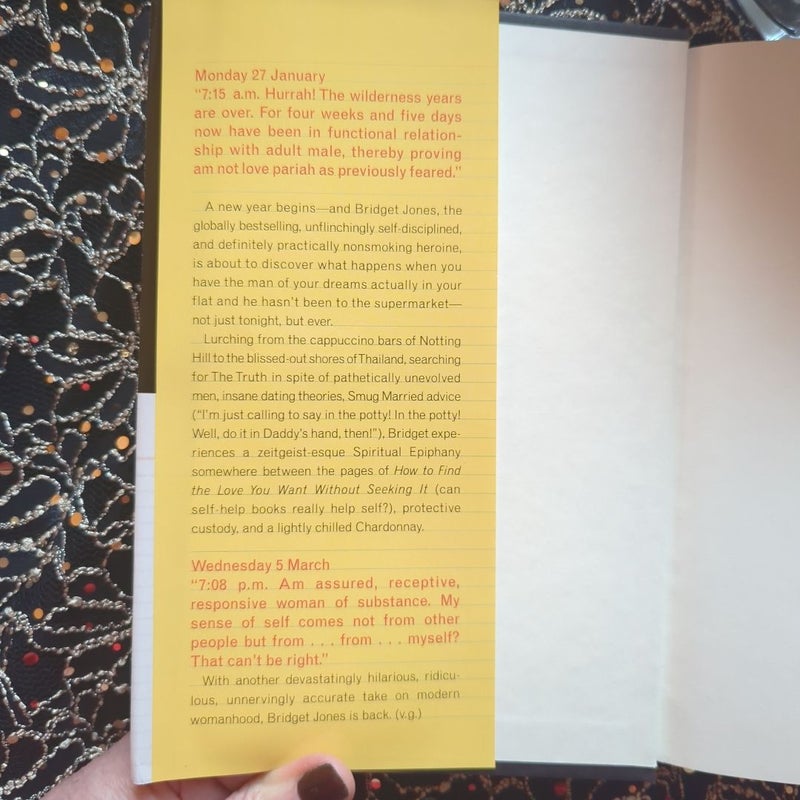 Monday 27 January
"7:15 a.m. Hurrah! The wilderness years
are over. For four weeks and five days
now have been in functional relation-
ship with adult male, thereby proving
am not love pariah as previously feared."
A new year begins—and Bridget Jones, the
globally bestselling, unflinchingly self-disciplined,
and definitely practically nonsmoking heroine,
is about to discover what happens when you
have the man of your dreams actually in your
flat and he hasn't been to the supermarket—
not just tonight, but ever.
Lurching from the cappuccino bars of Notting
Hill to the blissed-out shores of Thailand, searching
for The Truth in spite of pathetically unevolved
men, insane dating theories, Smug Married advice
("I'm just calling to say in the potty! In the potty!
Well, do it in Daddy's hand, then!"), Bridget expe-
riences a zeitgeist-esque Spiritual Epiphany
somewhere between the pages of How to Find
the Love You Want Without Seeking It (can
self-help books really help self?), protective
custody, and a lightly chilled Chardonnay.
Wednesday 5 March
"7:08 p.m. Am assured, receptive,
responsive woman of substance. My
sense of self comes not from other
people but from . . . from . . . myself?
That can't be right."
With another devastatingly hilarious, ridicu-
lous, unnervingly accurate take on modern
womanhood, Bridget Jones is back. (v.g.)